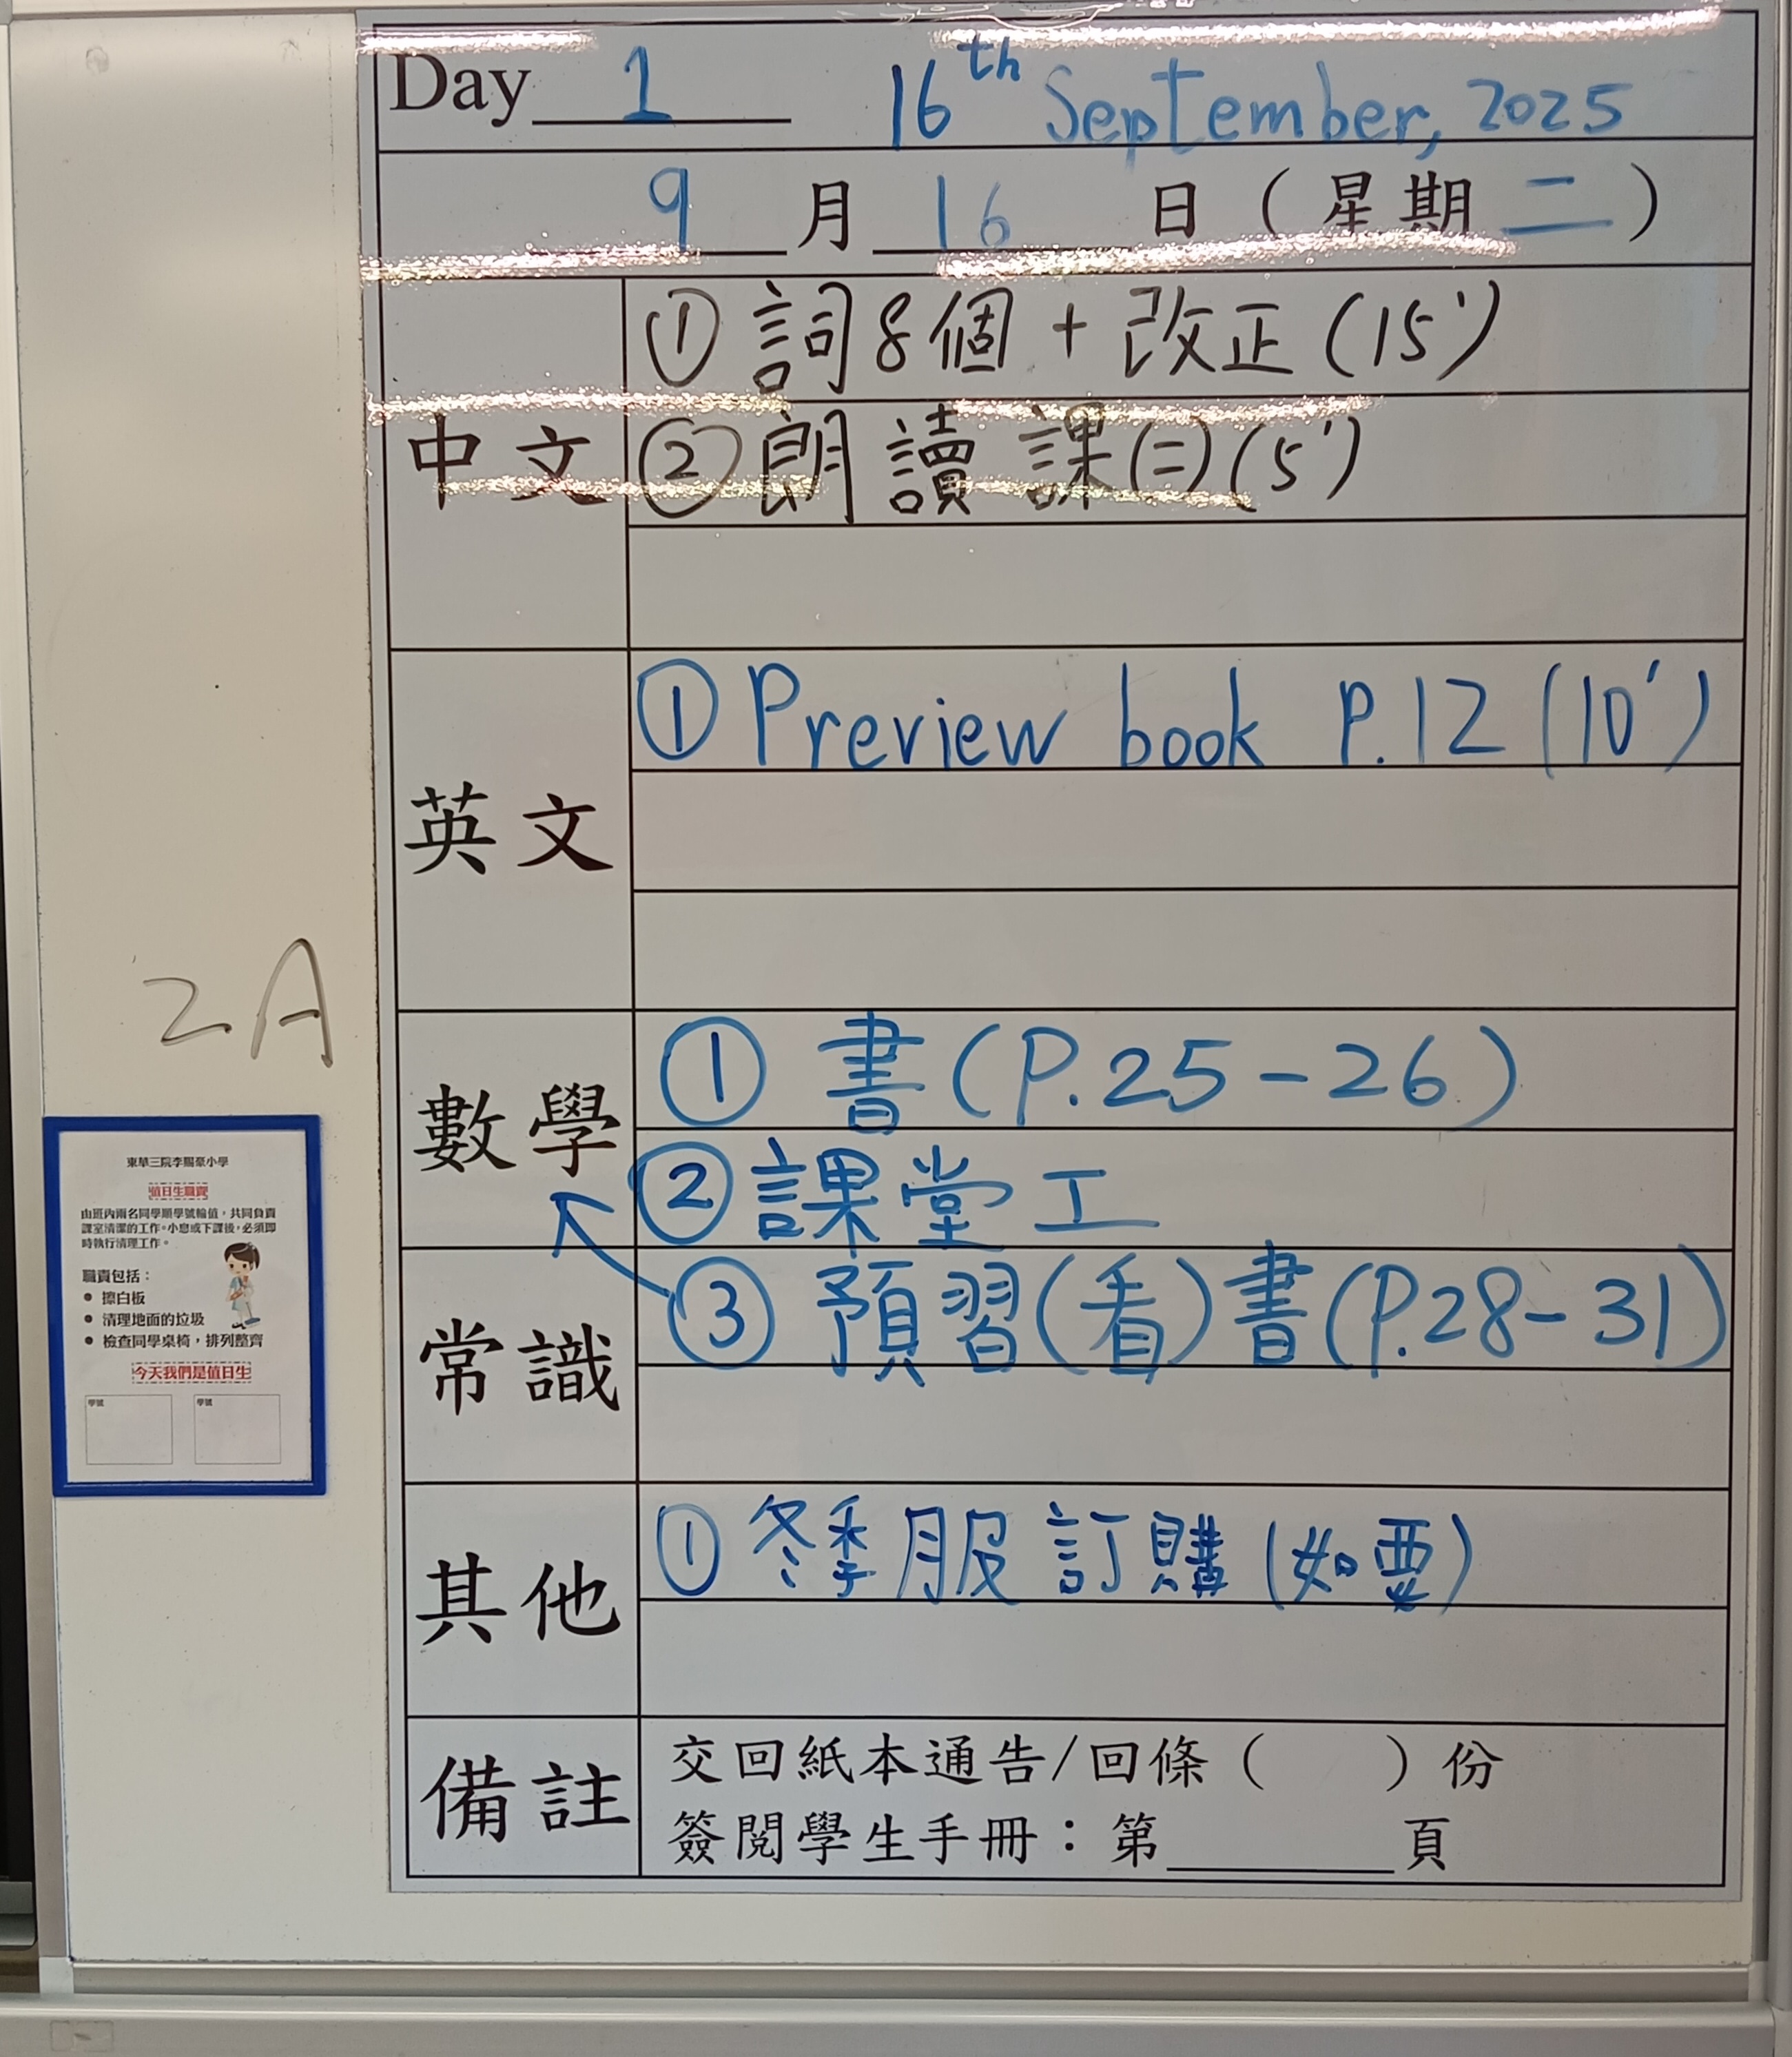 Day 1 16th September, 2025
9 月 16 日 ( 星期 二 )
中文
① 詞8個 + 改正 (15')
② 朗讀 課(二) (5')
英文
① Preview book P.12 (10')
數學
① 書 (P.25-26)
② 課堂工
常識
③ 預習(看)書(P.28-31)
其他
① 冬季服訂購 (如要)
備註
交回紙本通告/回條 ( ) 份
簽閱學生手冊：第____頁
2A
東華三院李賜豪小學
值日生職責
由班內兩名同學順學號輪值，共同負責
課室清潔的工作。小息或下課後，必須即
時執行清理工作。
職責包括：
● 擦白板
● 清理地面的垃圾
● 檢查同學桌椅，排列整齊
今天我們是值日生
學號 學號